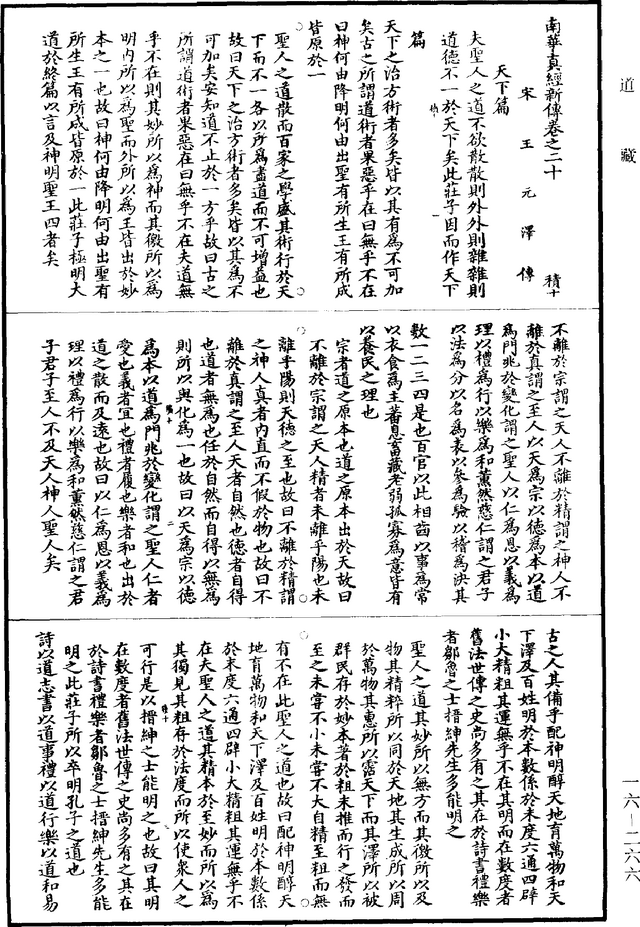 道藏
南華真經新傳卷之二十
積十
宋王元澤傳
天下篇
夫聖人之道不欲散散則外外則雜雜則
道德不一於天下矣此莊子因而作天下
篇
天下之治方術者多矣皆以其有為不可加
矣古之所謂道術者果惡乎在曰無乎不在
曰神何由降明何由出聖有所生王有所成
皆原於一
聖人之道散而百家之學盛其術行於天
下而不一各以所為盡道而不可增益也
故曰天下之治方術者多矣皆以其為不
可加矣安知道不止於一方乎故曰古之
所謂道術者果惡在曰無乎不在夫道無
乎不在則其妙所以為神而其微所以為
明內所以為聖而外所以為王皆出於妙
本之一也故曰神何由降明何由出聖有
所生王有所成皆原於一此莊子極明大
道於終篇以言及神明聖王四者矣
不離於宗謂之天人不離於精謂之神人不
離於真謂之至人以天為宗以德為本以道
為門兆於變化謂之聖人以仁為恩以義為
理以禮為行以樂為和薰然慈仁謂之君子
以法為分以名為表以參為驗以稽為決其
數一二三四是也百官以此相齒以事為常
以衣食為主蕃息畜藏老弱孤寡為意皆有
以養民之理也
宗者道之原本也道之原本出於天故曰
不離於宗謂之天人精者未離乎陽也未
離乎陽則天德之至也故曰不離於精謂
之神人真者內直而不假於物也故曰不
離於真謂之至人天者自然也德者自得
也道者無為也任於自然而自得以無為
則所以與化為一也故曰以天為宗以德
為本以道為門兆於變化謂之聖人仁者
愛也義者宜也禮者履也樂者和也出於
道之散而及遠也故曰以仁為恩以義為
理以禮為行以樂為和薰然慈仁謂之君
子君子至人不及天人神人聖人矣
古之人其備乎配神明醇天地育萬物和天
下澤及百姓明於本數係於末度六通四辟
小大精粗其運無乎不在其明而在數度者
舊法世傳之史尚多有之其在於詩書禮樂
者鄒魯之士搢紳先生多能明之
聖人之道其妙所以無方而其微所以及
物其精粹所以同於天地其生成所以周
於萬物其惠所以霑天下而其澤所以被
群民存於妙本著於粗末推而行之發而
至之未嘗不小未嘗不大自精至粗而無
有不在此聖人之道也故曰配神明醇天
地育萬物和天下澤及百姓明於本數係
於末度六通四辟小大精粗其運無乎不
在夫聖人之道其精本於至妙而所以為
其獨見其粗存於法度而所以使衆人之
可行是以搢紳之士能明之也故曰其明
在數度者舊法世傳之史尚多有之其在
於詩書禮樂者鄒魯之士搢紳先生多能
明之此莊子所以卒明孔子之道也
詩以道志書以道事禮以道行樂以道和易
一六—二六六